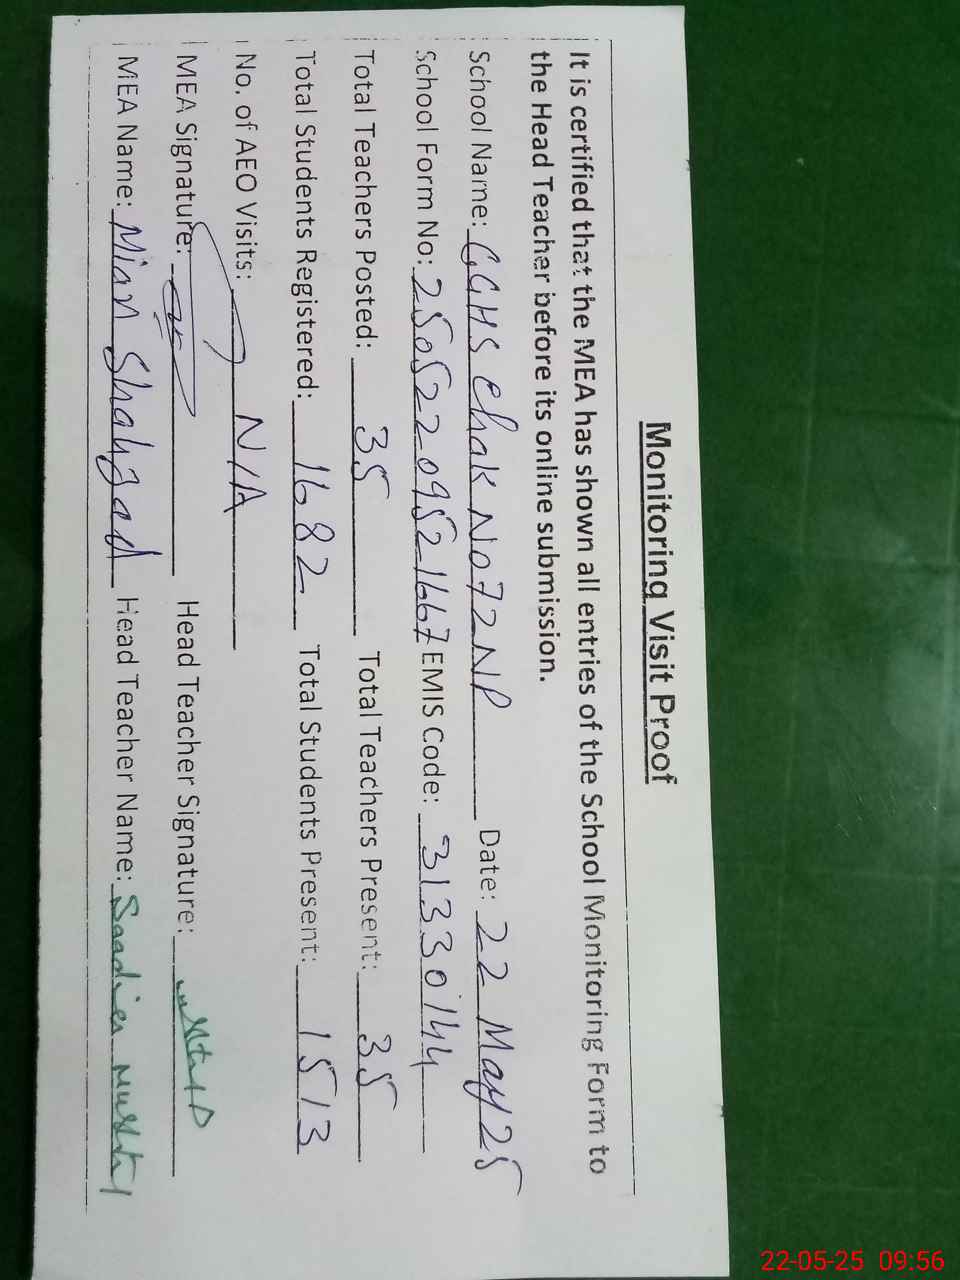 Monitoring Visit Proof
It is certified that the MEA has shown all entries of the School Monitoring Form to
the Head Teacher before its online submission.
School Name: GGHS Chak No 72 NP Date: 22 May 25
School Form No: 25052209521667 EMIS Code: 31330144
Total Teachers Posted: 35 Total Teachers Present: 35
Total Students Registered: 1682 Total Students Present: 1513
No. of AEO Visits: N/A
MEA Signature: Head Teacher Signature:
MEA Name: Mian Shahzad Head Teacher Name: Saadia
22-05-25 09:56